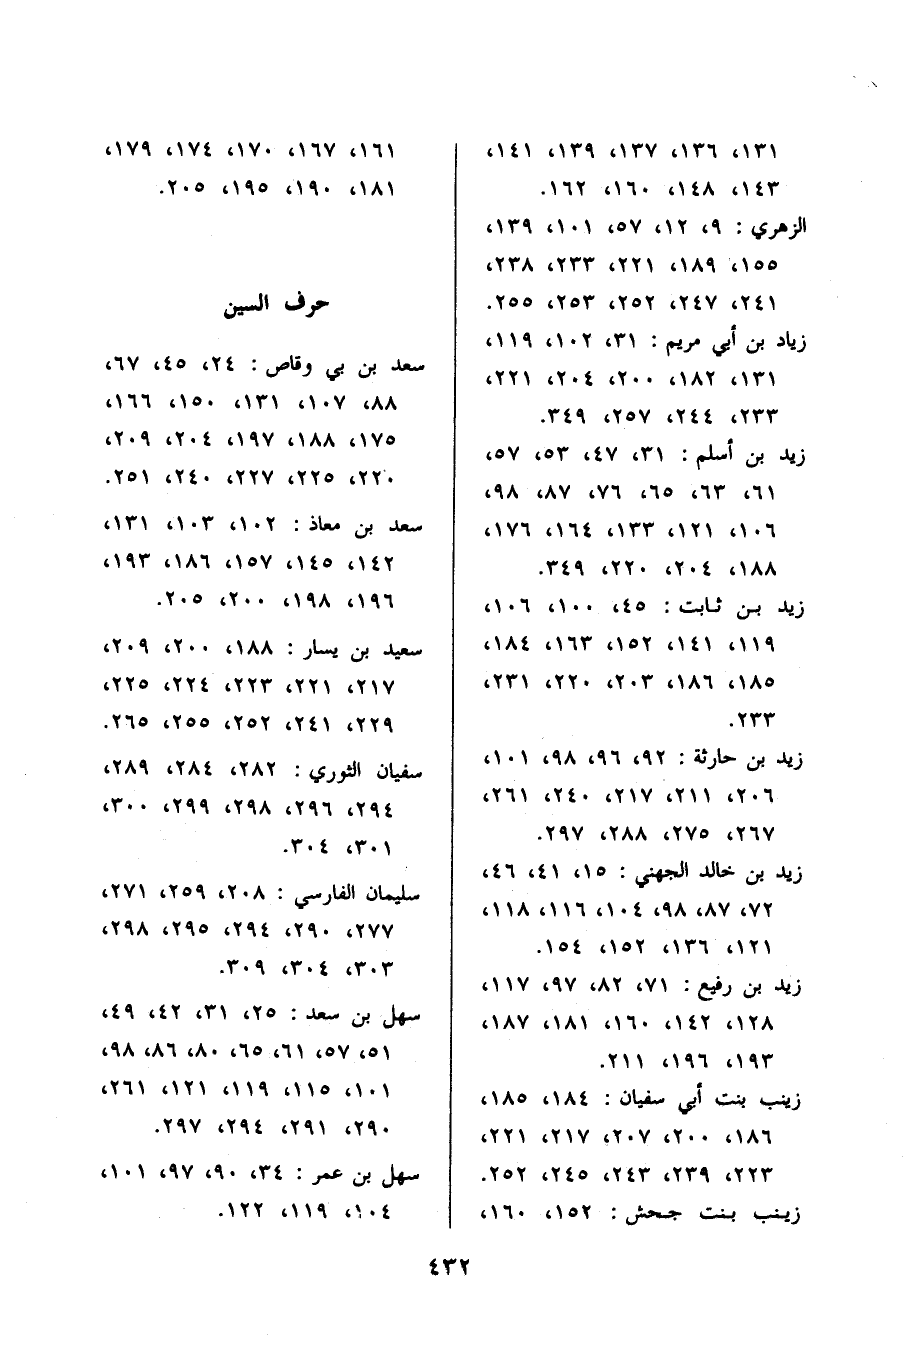 ١٣١، ١٣٦، ١٣٧، ١٣٩، ١٤١،
١٤٣، ١٤٨، ١٦٠، ١٦٢.
الزهري : ٩، ١٢، ٥٧، ١٠١، ١٣٩،
١٥٥، ١٨٩، ٢٢١، ٢٣٣، ٢٣٨،
٢٤١، ٢٤٧، ٢٥٢، ٢٥٣، ٢٥٥.
زياد بن أبي مريم : ٣١، ١٠٢، ١١٩،
١٣١، ١٨٢، ٢٠٠، ٢٠٤، ٢٢١،
٢٣٣، ٢٤٤، ٢٥٧، ٣٤٩.
زيد بن أسلم : ٣١، ٤٧، ٥٣، ٥٧،
٦١، ٦٣، ٦٥، ٧٦، ٨٧، ٩٨،
١٠٦، ١٢١، ١٣٣، ١٦٤، ١٧٦،
١٨٨، ٢٠٤، ٢٢٠، ٣٤٩.
زيد بن ثابت : ٤٥، ١٠٠، ١٠٦،
١١٩، ١٤١، ١٥٢، ١٦٣، ١٨٤،
١٨٥، ١٨٦، ٢٠٣، ٢٢٠، ٢٣١،
٢٣٣.
زيد بن حارثة : ٩٢، ٩٦، ٩٨، ١٠١،
٢٠٦، ٢١١، ٢١٧، ٢٤٠، ٢٦١،
٢٦٧، ٢٧٥، ٢٨٨، ٢٩٧.
زيد بن خالد الجهني : ١٥، ٤١، ٤٦،
٧٢، ٨٧، ٩٨، ١٠٤، ١١٦، ١١٨،
١٢١، ١٣٦، ١٥٢، ١٥٤.
زيد بن رفيع : ٧١، ٨٢، ٩٧، ١١٧،
١٢٨، ١٤٢، ١٦٠، ١٨١، ١٨٧،
١٩٣، ١٩٦، ٢١١.
زينب بنت أبي سفيان : ١٨٤، ١٨٥،
١٨٦، ٢٠٠، ٢٠٧، ٢١٧، ٢٢١،
٢٢٣، ٢٣٩، ٢٤٣، ٢٤٥، ٢٥٢.
زينب بنت جحش : ١٥٢، ١٦٠،
١٦١، ١٦٧، ١٧٠، ١٧٤، ١٧٩،
١٨١، ١٩٠، ١٩٥، ٢٠٥.
حرف السين
سعد بن بي وقاص : ٢٤، ٤٥، ٦٧،
٨٨، ١٠٧، ١٣١، ١٥٠، ١٦٦،
١٧٥، ١٨٨، ١٩٧، ٢٠٤، ٢٠٩،
٢٢٠، ٢٢٥، ٢٢٧، ٢٤٠، ٢٥١.
سعد بن معاذ : ١٠٢، ١٠٣، ١٣١،
١٤٢، ١٤٥، ١٥٧، ١٨٦، ١٩٣،
١٩٦، ١٩٨، ٢٠٠، ٢٠٥.
سعيد بن يسار : ١٨٨، ٢٠٠، ٢٠٩،
٢١٧، ٢٢١، ٢٢٣، ٢٢٤، ٢٢٥،
٢٢٩، ٢٤١، ٢٥٢، ٢٥٥، ٢٦٥.
سفيان الثوري : ٢٨٢، ٢٨٤، ٢٨٩،
٢٩٤، ٢٩٦، ٢٩٨، ٢٩٩، ٣٠٠،
٣٠١، ٣٠٤.
سليمان الفارسي : ٢٠٨، ٢٥٩، ٢٧١،
٢٧٧، ٢٩٠، ٢٩٤، ٢٩٥، ٢٩٨،
٣٠٣، ٣٠٤، ٣٠٩.
سهل بن سعد : ٢٥، ٣١، ٤٢، ٤٩،
٥١، ٥٧، ٦١، ٦٥، ٨٠، ٨٦، ٩٨،
١٠١، ١١٥، ١١٩، ١٢١، ٢٦١،
٢٩٠، ٢٩١، ٢٩٤، ٢٩٧.
سهل بن عمر : ٣٤، ٩٠، ٩٧، ١٠١،
١٠٤، ١١٩، ١٢٢.
٤٣٢